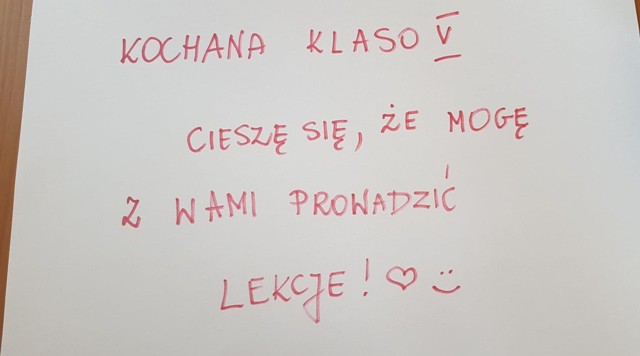 KOCHANA KLASO V
CIESZĘ SIĘ, ŻE MOGĘ
Z WAMI PROWADZIĆ
LEKCJE! ♡ :)